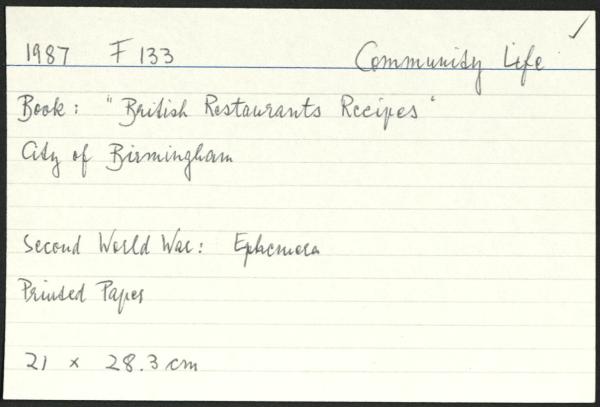 1987 F 133 Community Life
Book: "British Restaurants Recipes"
City of Birmingham
Second World War: Ephemera
Printed Paper
21 x 28.3 cm